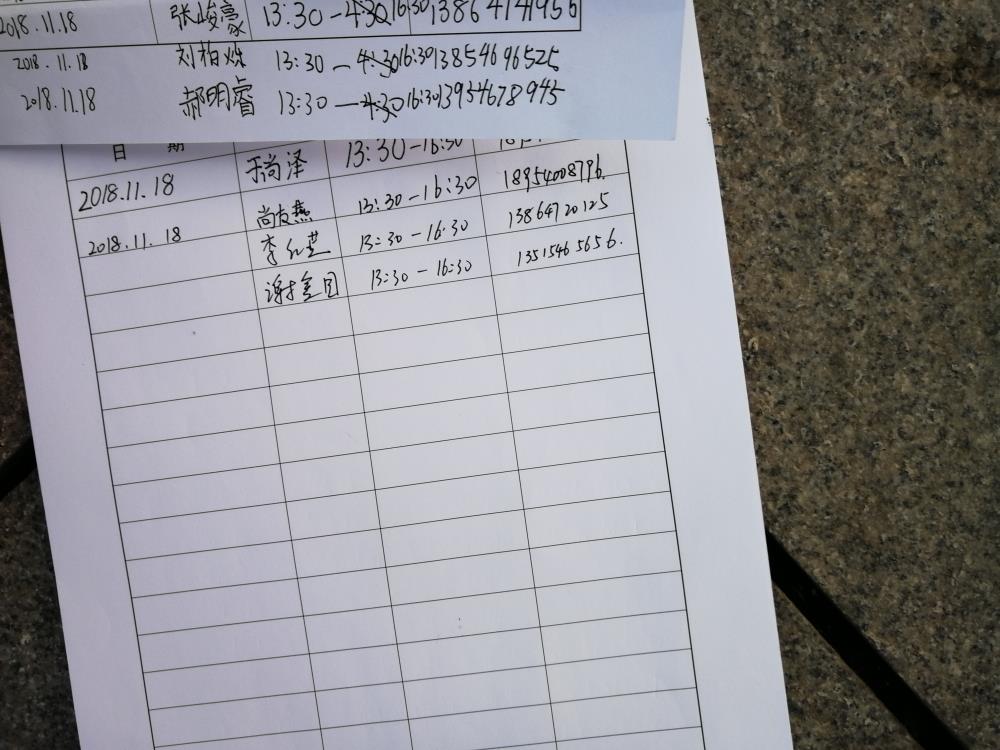 2018.11.18 张峻豪 13:30-4:30 16:30 13864741956
2018.11.18 刘柏烁 13:30-4:30 16:30 13854696525
2018.11.18 郝明睿 13:30-4:30 16:30 13954678945
日 期
2018.11.18 于尚泽 13:30-16:30
尚友燕 13:30-16:30 18954008796.
2018.11.18 李红芝 13:30-16:30 13864720125
谢金国 13:30-16:30 13515465656.